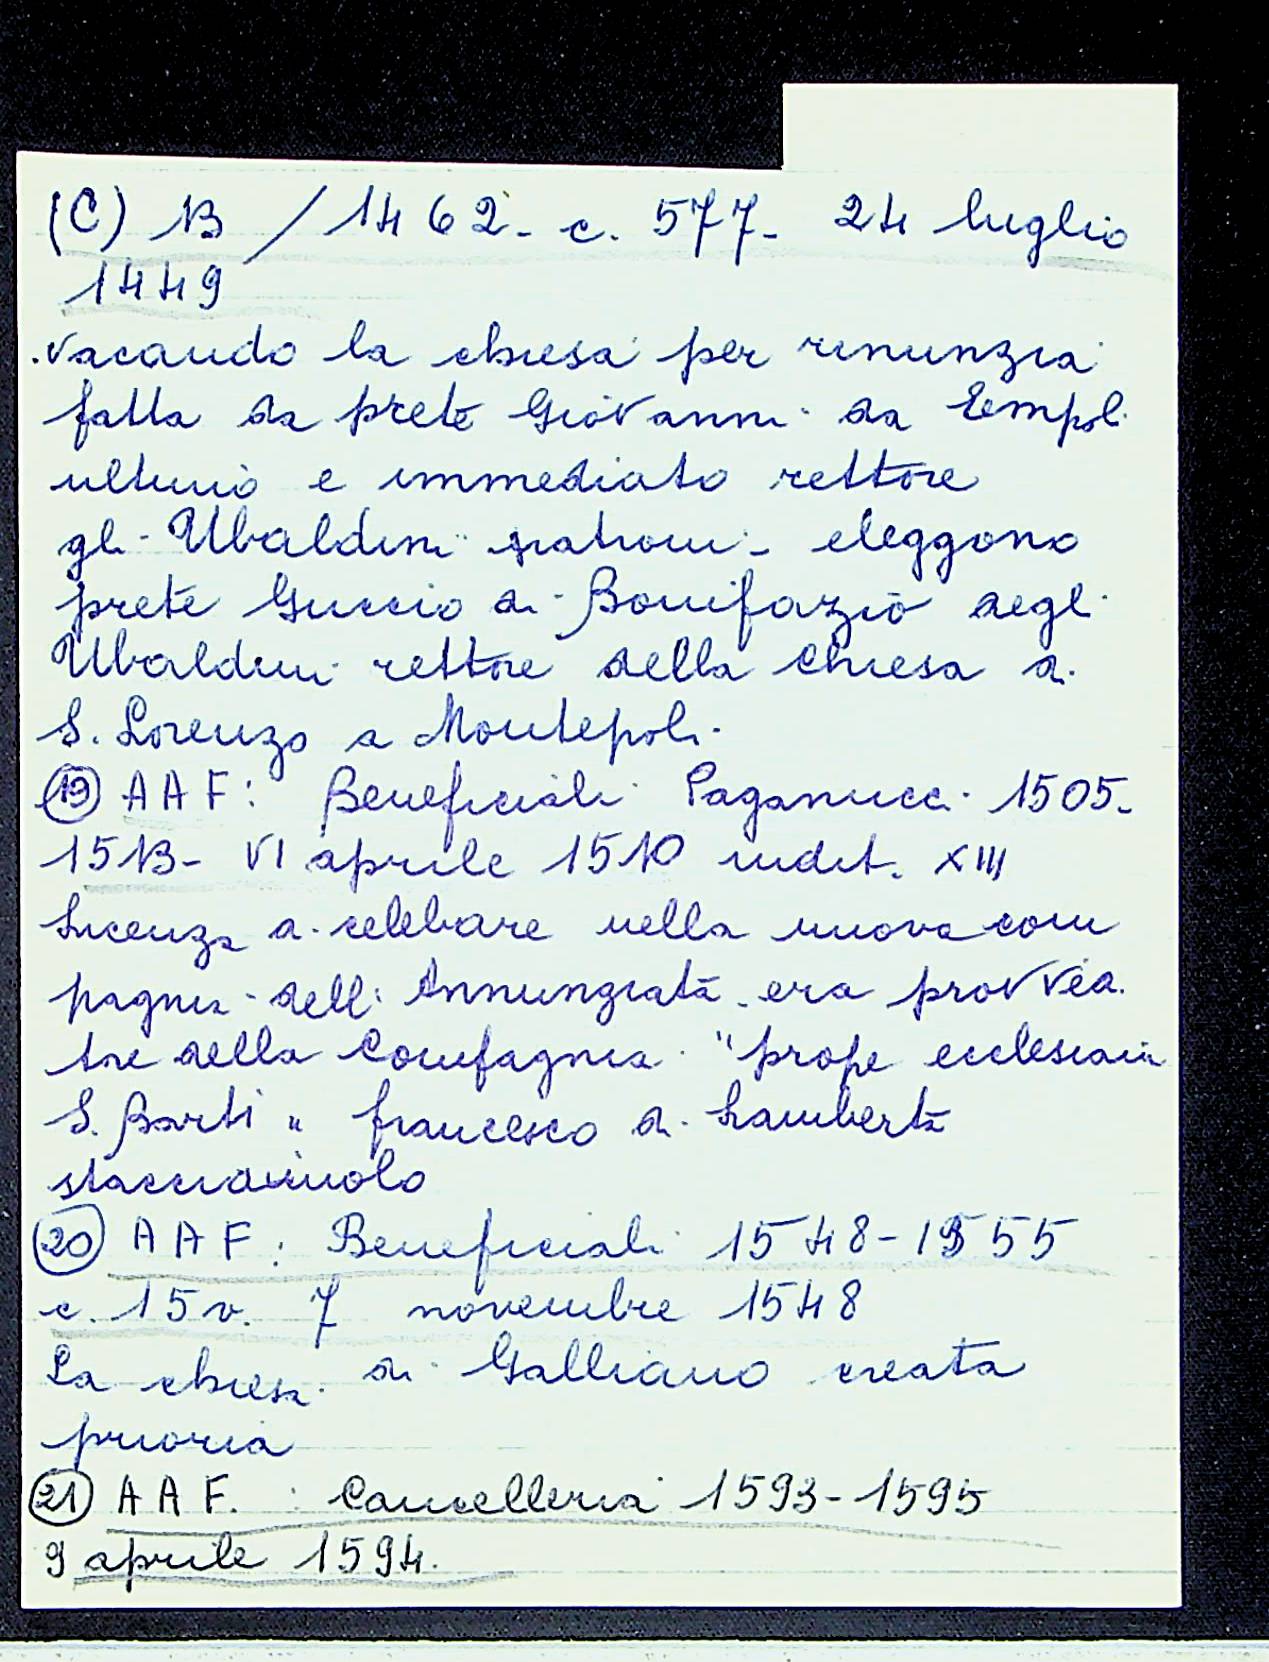 (C) B / 1462 - c. 577 - 24 luglio
1449
.vacando la chiesa per rinunzia
fatta da prete Giovanni da Empoli
ultimo e immediato rettore
gli Ubaldini patroni - eleggono
prete Guccio di Bonifazio degli
Ubaldini rettore della chiesa di
S. Lorenzo a Montepoli
(19) AAF: Beneficiali Paganucci 1505-
1513 - VI aprile 1510 indit. XIII
licenza di celebrare nella nuova com
pagnia dell' Annunziata era provvedi
tore della Compagnia "prope ecclesiam
S. Barti" francesco di Lamberto
(20) AAF: Beneficiali 1548-1555
c. 15v. 7 novembre 1548
La chiesa di Galliano creata
prioria
(21) AAF. : Cancelleria 1593-1595
9 aprile 1594.